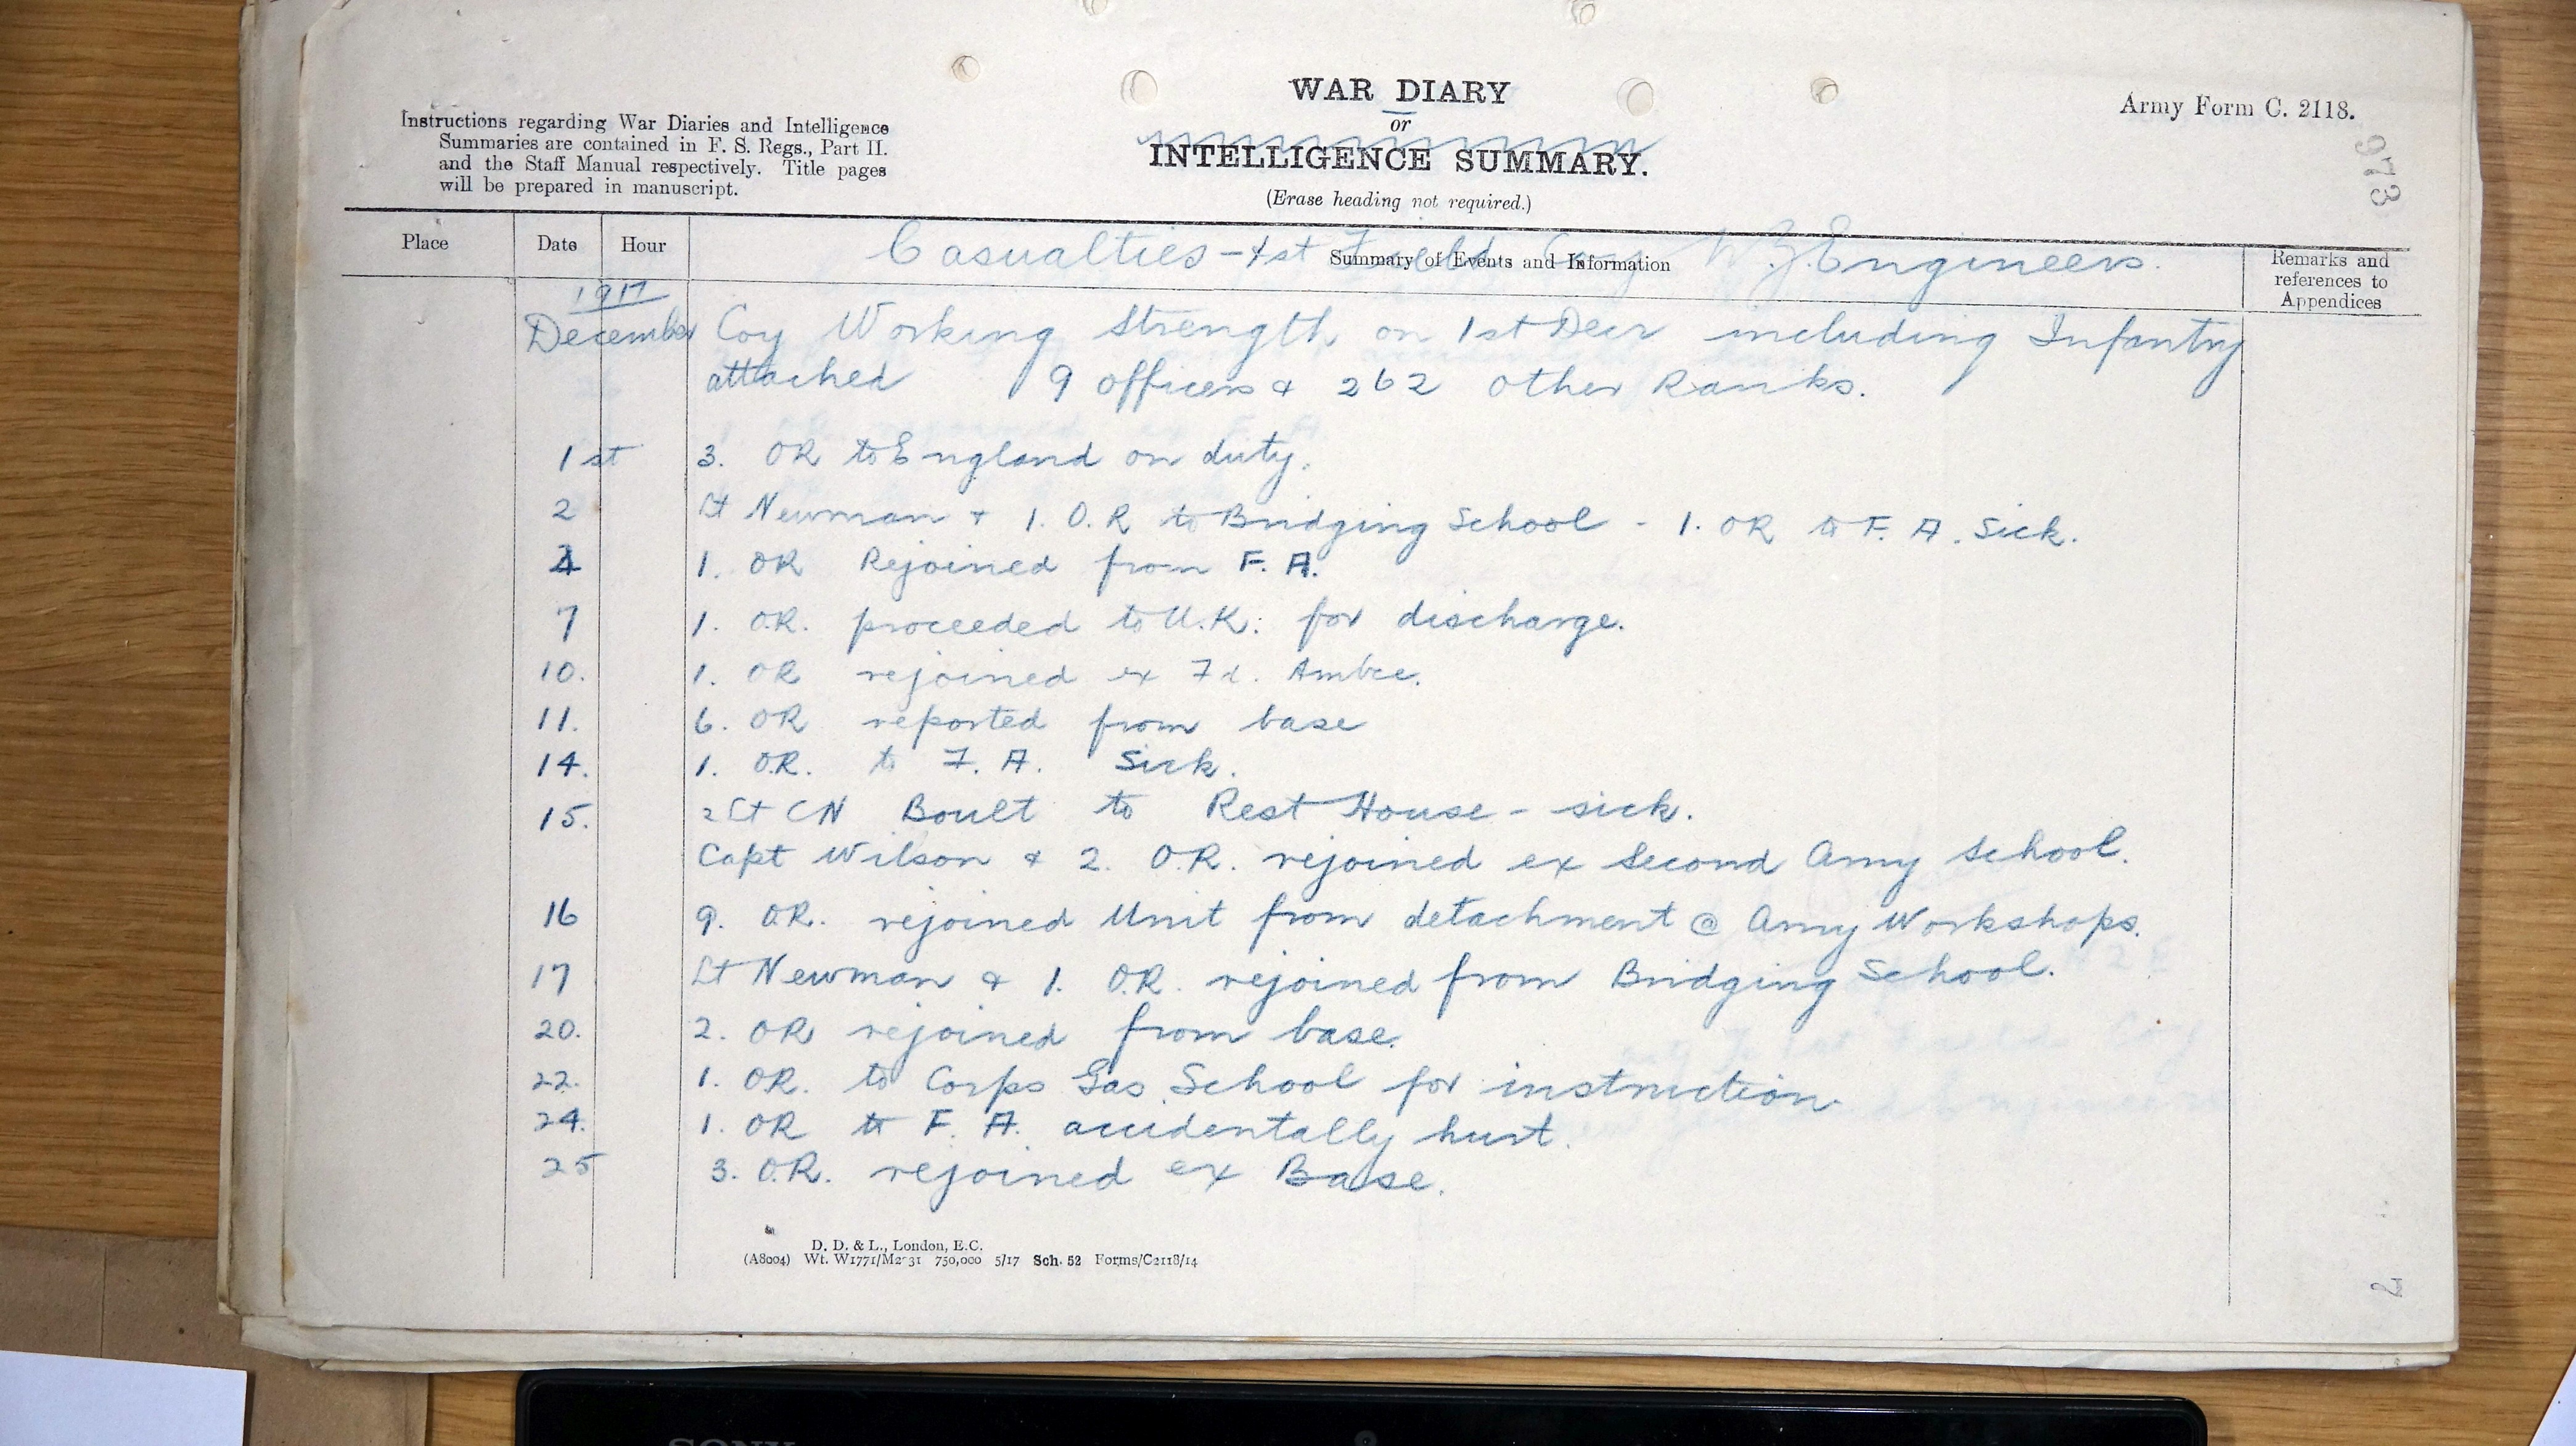 WAR DIARY
or
INTELLIGENCE SUMMARY.
(Erase heading not required.)
Instructions regarding War Diaries and Intelligence
Summaries are contained in F. S. Regs., Part II.
and the Staff Manual respectively. Title pages
will be prepared in manuscript.
Army Form C. 2118.
973
Place Date Hour Summary of Events and Information Remarks and
references to
Appendices
Casualties - 1st Field Coy N.Z. Engineers.
1917
December Coy Working Strength on 1st Decr including Infantry
attached 9 officers & 262 other Ranks.
1st 3. OR to England on duty.
2 Lt Newman & 1. O.R to Bridging School - 1. OR to F. A. Sick.
4 1. OR Rejoined from F. A.
7 1. O.R. proceeded to U.K: for discharge.
10. 1. OR rejoined ex Fd. Ambce.
11. 6. OR reported from base
14. 1. O.R. to F. A. Sick.
15. 2Lt CN Boult to Rest House - sick.
Capt Wilson & 2. O.R. rejoined ex Second Army School.
16 9. O.R. rejoined Unit from detachment @ Army Workshops.
17 Lt Newman & 1. O.R. rejoined from Bridging School.
20. 2. OR rejoined from base.
22. 1. OR. to Corps Gas School for instruction
24. 1. OR to F. A. accidentally hurt.
25 3. O.R. rejoined ex Base.
D. D. & L., London, E.C.
(A8004) Wt. W1771/M2131 750,000 5/17 Sch. 52 Forms/C2118/14
2
SONY